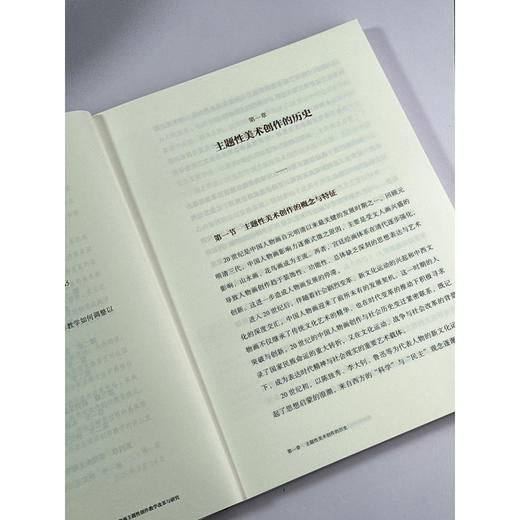 教学如何调整以
主题性创作教学改革与研究
第一章
主题性美术创作的历史
第一节 主题性美术创作的概念与特征
20世纪是中国人物画自元明清以来最关键的发展时期之一。回顾元
明清三代,中国人物画影响力逐渐式微之原因,主要是受文人画兴盛的
影响,山水画、花鸟画成为主流。再者,宫廷绘画体系在清代逐步强化,
导致人物画创作趋于装饰性、功能性,总体缺乏深刻的思想表达与艺术
创新,这进一步造成人物画发展的停滞。
进入20世纪后,伴随着社会剧烈变革、新文化运动的兴起和中西文
化的深度交汇,中国人物画迎来了前所未有的发展契机。这一时期的人
物画不仅继承了传统文化艺术的精华,也在时代变革的推动下积极寻求
突破与创新。20世纪的中国人物画创作与社会历史变迁紧密联系,既记
录了国家民族命运的重大转折,又在文化运动、战争与社会改革的背景
下,成为表达时代精神与社会现实的重要艺术载体。
20世纪初,以陈独秀、李大钊、鲁迅等为代表人物的新文化运
起了思想启蒙的浪潮,来自西方的“科学”与“民主”观念逐渐
第一章 主题性美术创作的历史